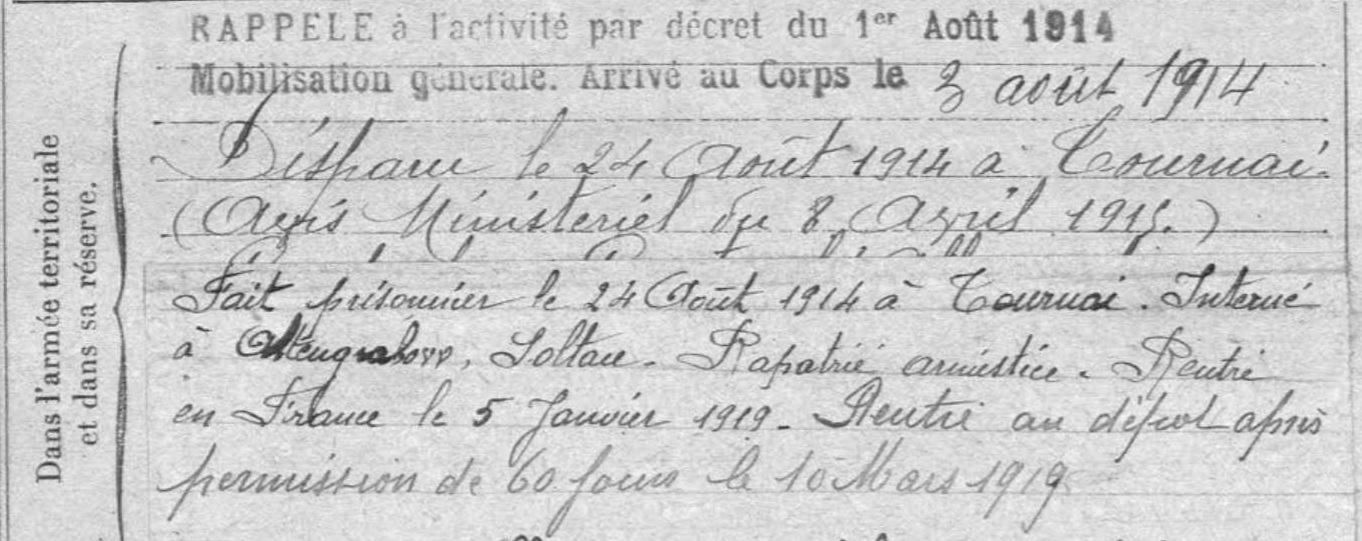 RAPPELÉ à l'activité par décret du 1er Août 1914
Mobilisation générale. Arrivé au Corps le 3 août 1914
Dans l'armée territoriale
et dans sa réserve.
Disparu le 24 Août 1914 à Tournai.
(Avis Ministeriel du 8 Avril 1915.)
Fait prisonnier le 24 Août 1914 à Tournai. Interné
à Altengrabow, Soltau. Rapatrié armistice. Rentré
en France le 5 Janvier 1919. Rentré au dépot après
permission de 60 jours le 10 Mars 1919